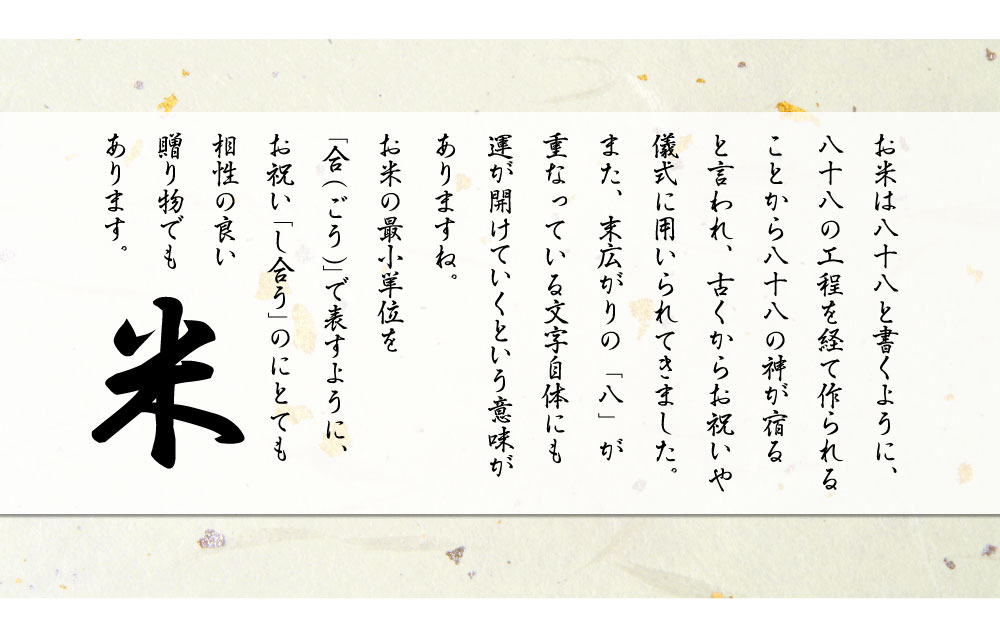 お米は八十八と書くように、
八十八の工程を経て作られる
ことから八十八の神が宿る
と言われ、古くからお祝いや
儀式に用いられてきました。
また、末広がりの「八」が
重なっている文字自体にも
運が開けていくという意味が
ありますね。
お米の最小単位を
「合(ごう)」で表すように、
お祝い「し合う」のにとても
相性の良い
贈り物でも
あります。
米